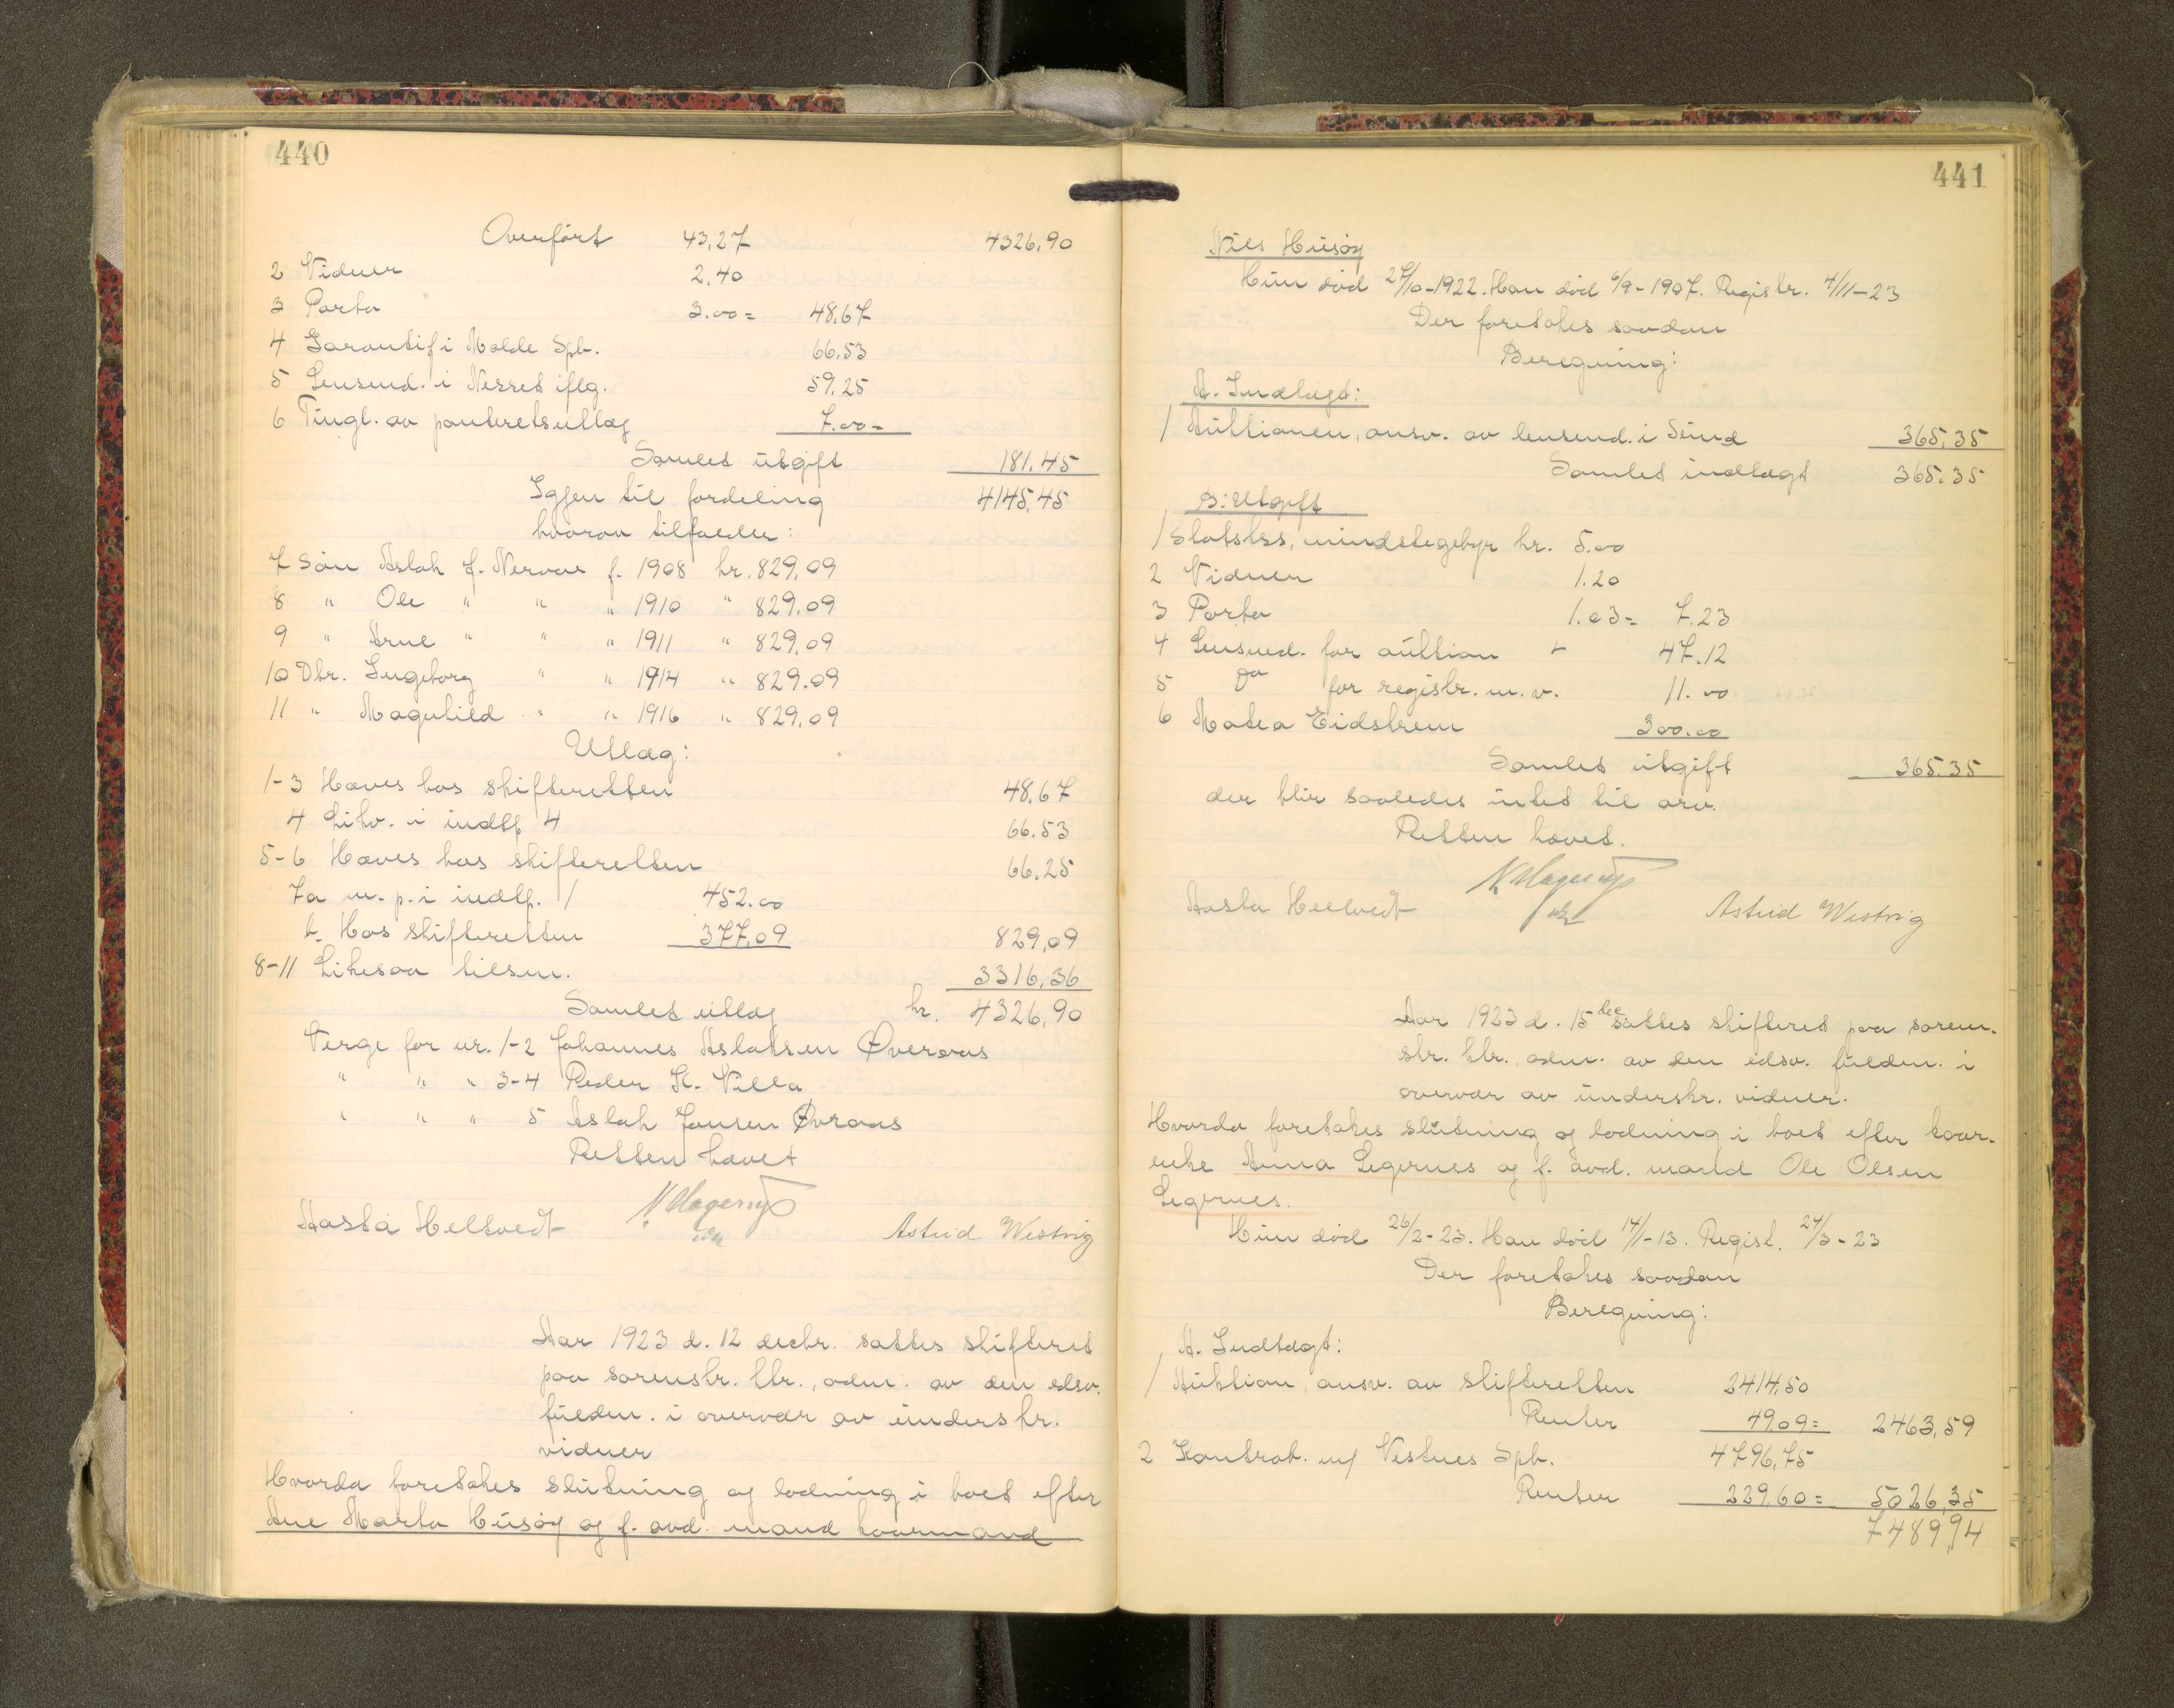 440
Overført 43,27 4326,90
2 Vidner 2,40
3 Porto 3.00= 48,67
4 Garantif i Molde Spb. 66,53
5 Lensmd. i Nesset iflg. 59,25
6 Tingl. av panteretsutlæg 7.00=
Samlet utgift 181.45
Igjen til fordeling 4145,45
hvorav tilfalder:
7 Søn Aslak J. Nervaas f. 1908 kr. 829,09
8 " Ole " " " 1910 " 829.09
9 " Arne " " " 1911 " 829,09
10 Dtr. Ingeborg " " 1914 " 829.09
11 " Magnhild " " 1916 " 829,09
Utlæg:
1-3 Haves hos skifteretten 48,67
4 Likv. i indtp 4 66.53
5-6 Haves hos skifteretten 66.25
7a m. p. i indtp. 1 452.00
b. Hos skifteretten 377,09 829,09
8-11 Likesaa tilsm. 3316,36
Samlet utlæg kr. 4326,90
Verge for nr. 1-2 Johannes Aslaksen Øveraas
" " " 3-4 Peder K. Villa
" " " 5 Aslak Jonsen Øvraas
Retten hævet
N Hagerup
Aasta Heltvedt Astrid Westvig
Aar 1923 d. 12 decbr. sattes skifteret
paa sorenskr. ktr., adm. av den edsv.
fuldm. i overvær av underskr.
vidner
Hvorda foretakes slutning og lodning i boet efter
Ane Marta Husøy og f. avd. mand kaarmand
441
Nils Husøy
Hun død 27/10-1922. Han død 6/9-1907. Registr. 4/11-23
Der foretakes saadan
Beregning:
A. Indtægt:
1 Auktionen, ansv. av lensmd. i Sund 365,35
Samlet indtægt 365.35
B: Utgift
1 Statsks, mindstegebyr kr. 5.00
2 Vidner 1.20
3 Porto 1.03= 7.23
4 Lensmd. for auktion 47.12
5 do for registr. m. v. 11.00
6 Matea Eidskrem 300.00
Samlet utgift 365.35
der blir saaledes intet til arv.
Retten hævet.
N Hagerup
Aasta Heltvedt Astrid Westvig
Aar 1923 d. 15 dec. sattes skifteret paa soren-
skr. ktr. adm. av den edsv. fuldm. i
overvær av underskr. vidner.
Hvorda foretakes slutning og lodning i boet efter kaar-
enke Anna Legernes og f. avd. mand Ole Olsen
Legernes.
Hun død 26/2-23. Han død 14/1-13. Regist. 24/3-23
Der foretakes saadan
Beregning:
A. Indtægt:
1 Auktion, ansv. av skifteretten 2414,50
Renter 49,09= 2463,59
2 Kontrab. m/ Vestnes Spb. 4796,75
Renter 229,60= 5026,35
7489,94